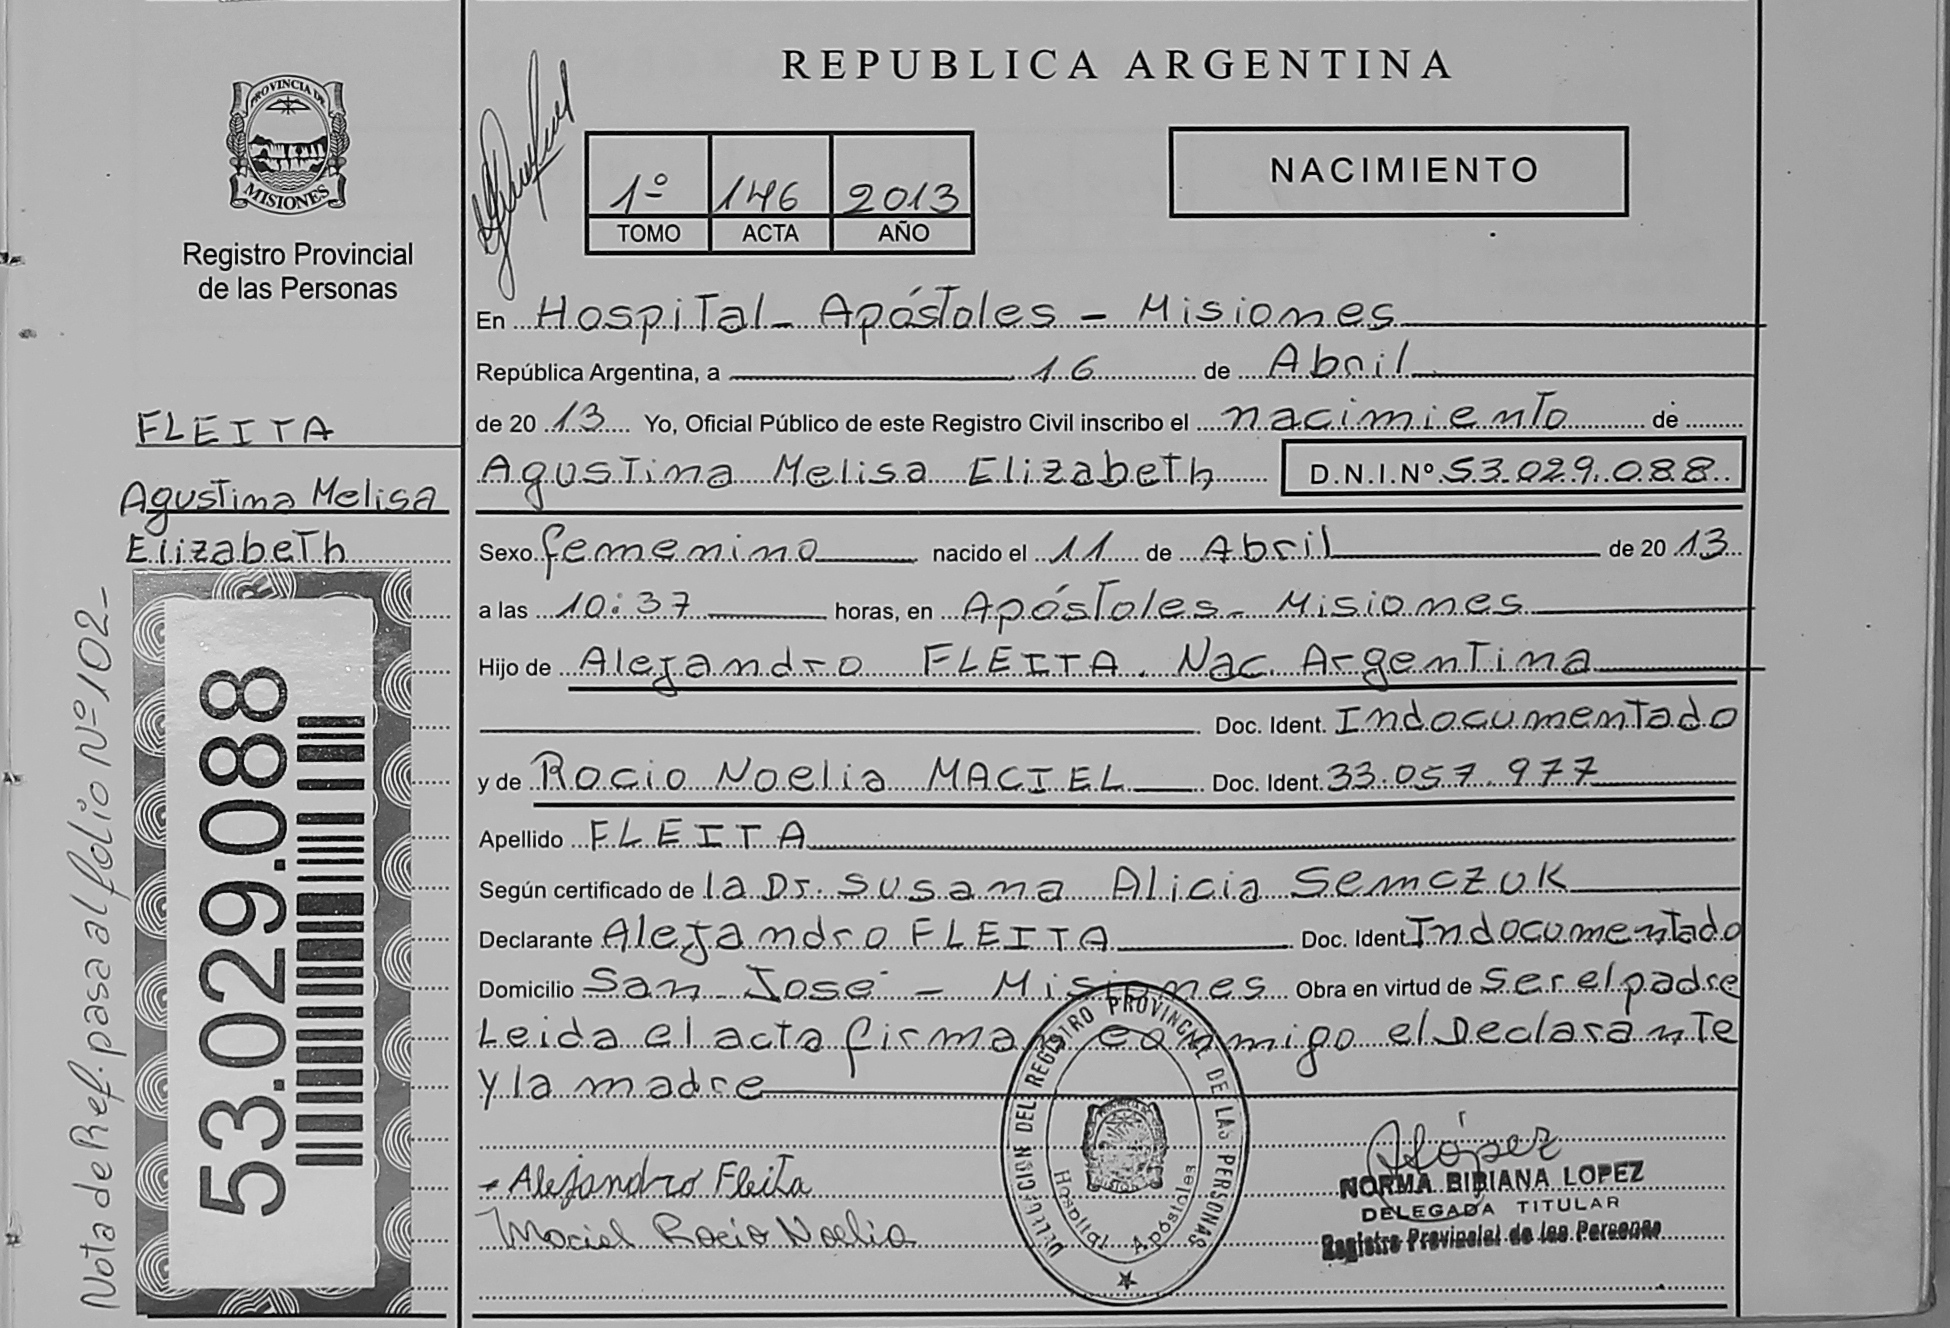 REPUBLICA ARGENTINA
PROVINCIA DE
MISIONES
Registro Provincial
de las Personas
1º 146 2013
TOMO ACTA AÑO
NACIMIENTO
En Hospital - Apóstoles - Misiones
República Argentina, a 16 de Abril
de 2013 Yo, Oficial Público de este Registro Civil inscribo el nacimiento de
Agustina Melisa Elizabeth D.N.I.Nº 53.029.088
Sexo femenino nacido el 11 de Abril de 2013
a las 10:37 horas, en Apóstoles - Misiones
Hijo de Alejandro FLEITA. Nac. Argentina
Doc. Ident. Indocumentado
y de Rocio Noelia MACIEL Doc. Ident. 33.057.977
Apellido FLEITA
Según certificado de la Dr. Susana Alicia Semczuk
Declarante Alejandro FLEITA Doc. Ident Indocumentado
Domicilio San José - Misiones Obra en virtud de Ser el padre
Leida el acta firman conmigo el Declarante
y la madre
- Alejandro Fleita
Maciel Rocio Noelia
DELEGACION DEL REGISTRO PROVINCIAL DE LAS PERSONAS
Hospital Apóstoles
López
NORMA BIBIANA LOPEZ
DELEGADA TITULAR
Registro Provincial de las Personas
FLEITA
Agustina Melisa
Elizabeth
53.029.088
Nota de Ref. pasa al folio Nº 102-